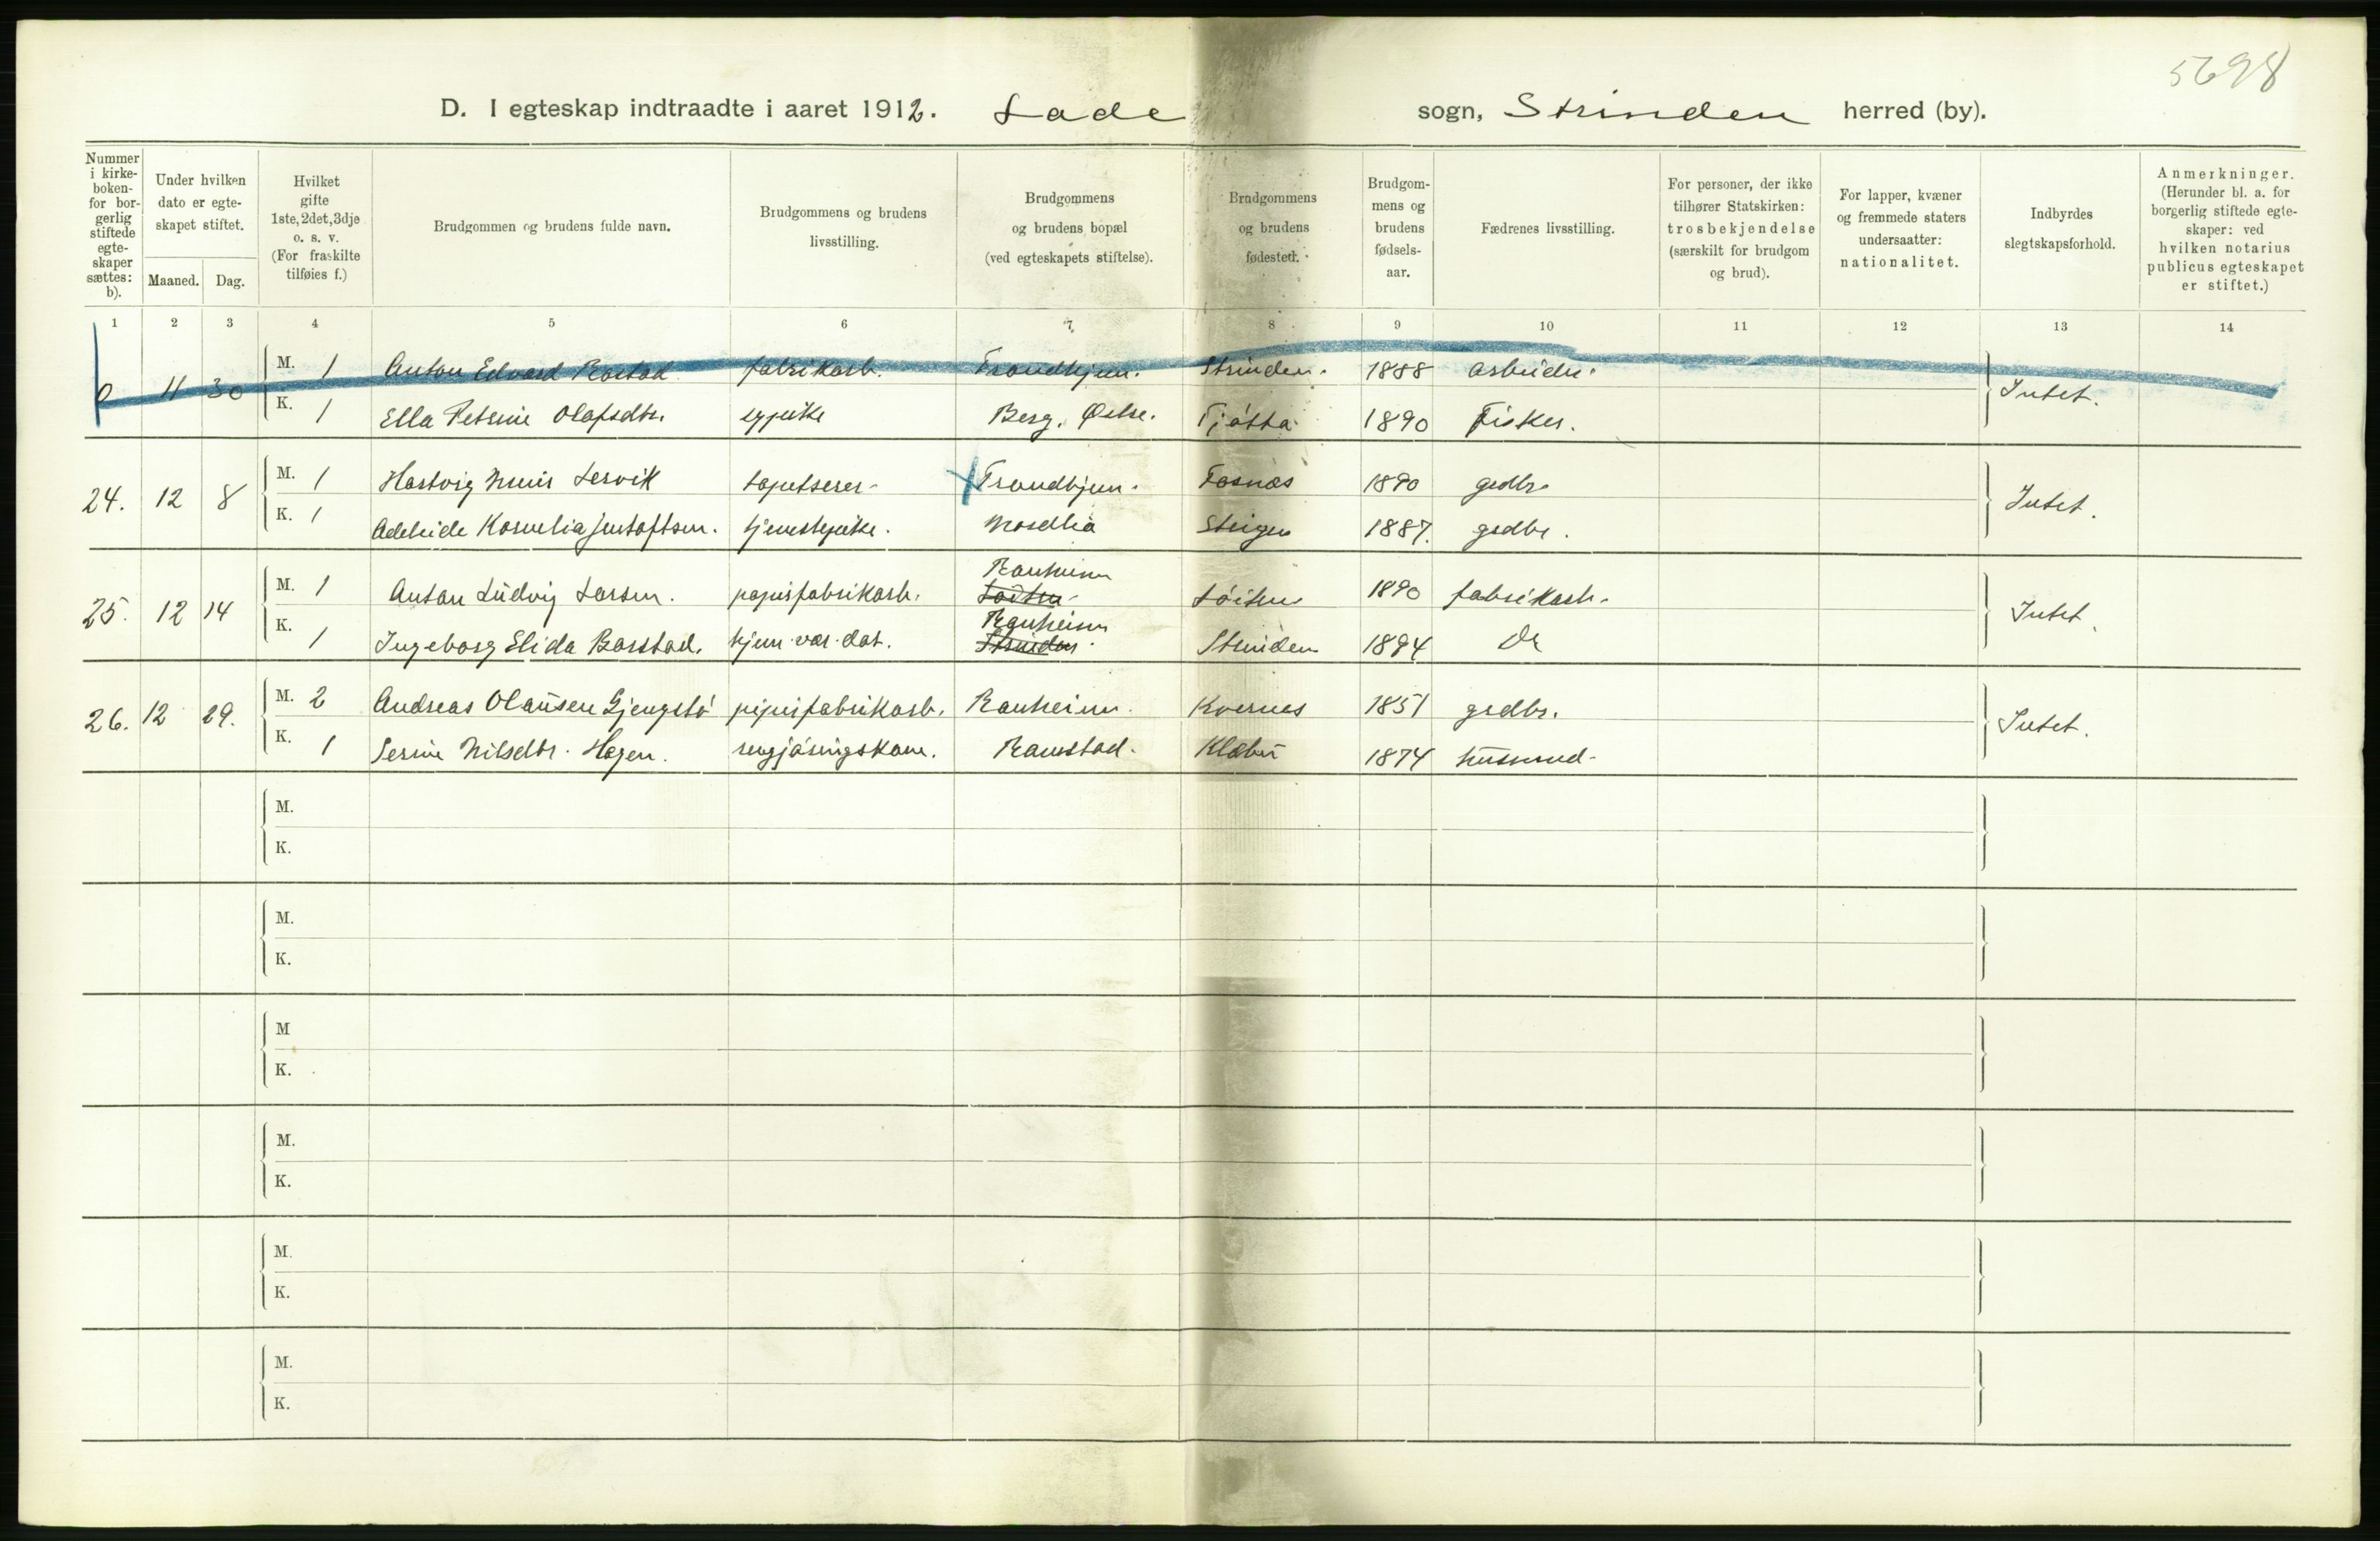 5698
D. I egteskap indtraadte i aaret 1912. Lade sogn, Strinden herred (by).
Nummer i kirke-boken- for bor-gerlig stiftede egte-skaper sættes: b).
Under hvilken dato er egte-skapet stiftet.
Maaned. Dag.
Hvilket gifte 1ste, 2det, 3dje o. s. v. (For fraskilte tilføies f.)
Brudgommen og brudens fulde navn.
Brudgommens og brudens livsstilling.
Brudgommens og brudens bopæl (ved egteskapets stiftelse).
Brudgommens og brudens fødested.
Brudgom-mens og brudens fødsels-aar.
Fædrenes livsstilling.
For personer, der ikke tilhører Statskirken: trosbekjendelse (særskilt for brudgom og brud).
For lapper, kvæner og fremmede staters undersaatter: nationalitet.
Indbyrdes slegtskapsforhold.
Anmerkninger. (Herunder bl. a. for borgerlig stiftede egte-skaper: ved hvilken notarius publicus egteskapet er stiftet.)
1 2 3 4 5 6 7 8 9 10 11 12 13 14
0 11 30 M. 1 Anton Edvard Rostad fabrikarb. Trondhjem. Strinden. 1888 arbeider. Intet.
K. 1 Ella Petrine Olafsdtr. egpike Berg, Østre. Tjøtta 1890 Fisker.
24. 12 8 M. 1 Hartvig Lervik tapetserer Trondhjem. Fosnæs 1890 grdbr. Intet.
K. 1 Adeleide Kornelia Justoftsen. tjenestepike. Mosdlia Steigen 1887. grdbr.
25. 12 14 M. 1 Anton Ludvig Larsen. papirfabrikarb. Ranheim Løiten Løiten 1890 fabrikarb. Intet.
K. 1 Ingeborg Elida Barstad. hjem.vær.dat. Ranheim Strinden. Strinden 1894 Do
26. 12 29. M. 2 Andreas Olausen Gjengstø papirfabrikarb. Ranheim. Kvernes 1851 grdbr. Intet.
K. 1 Serine Nilsdtr. Hagen. rengjøringskone. Ranstad. Klæbu 1874 husmand.
M.
K.
M.
K.
M
K.
M.
K.
M.
K.
M.
K.